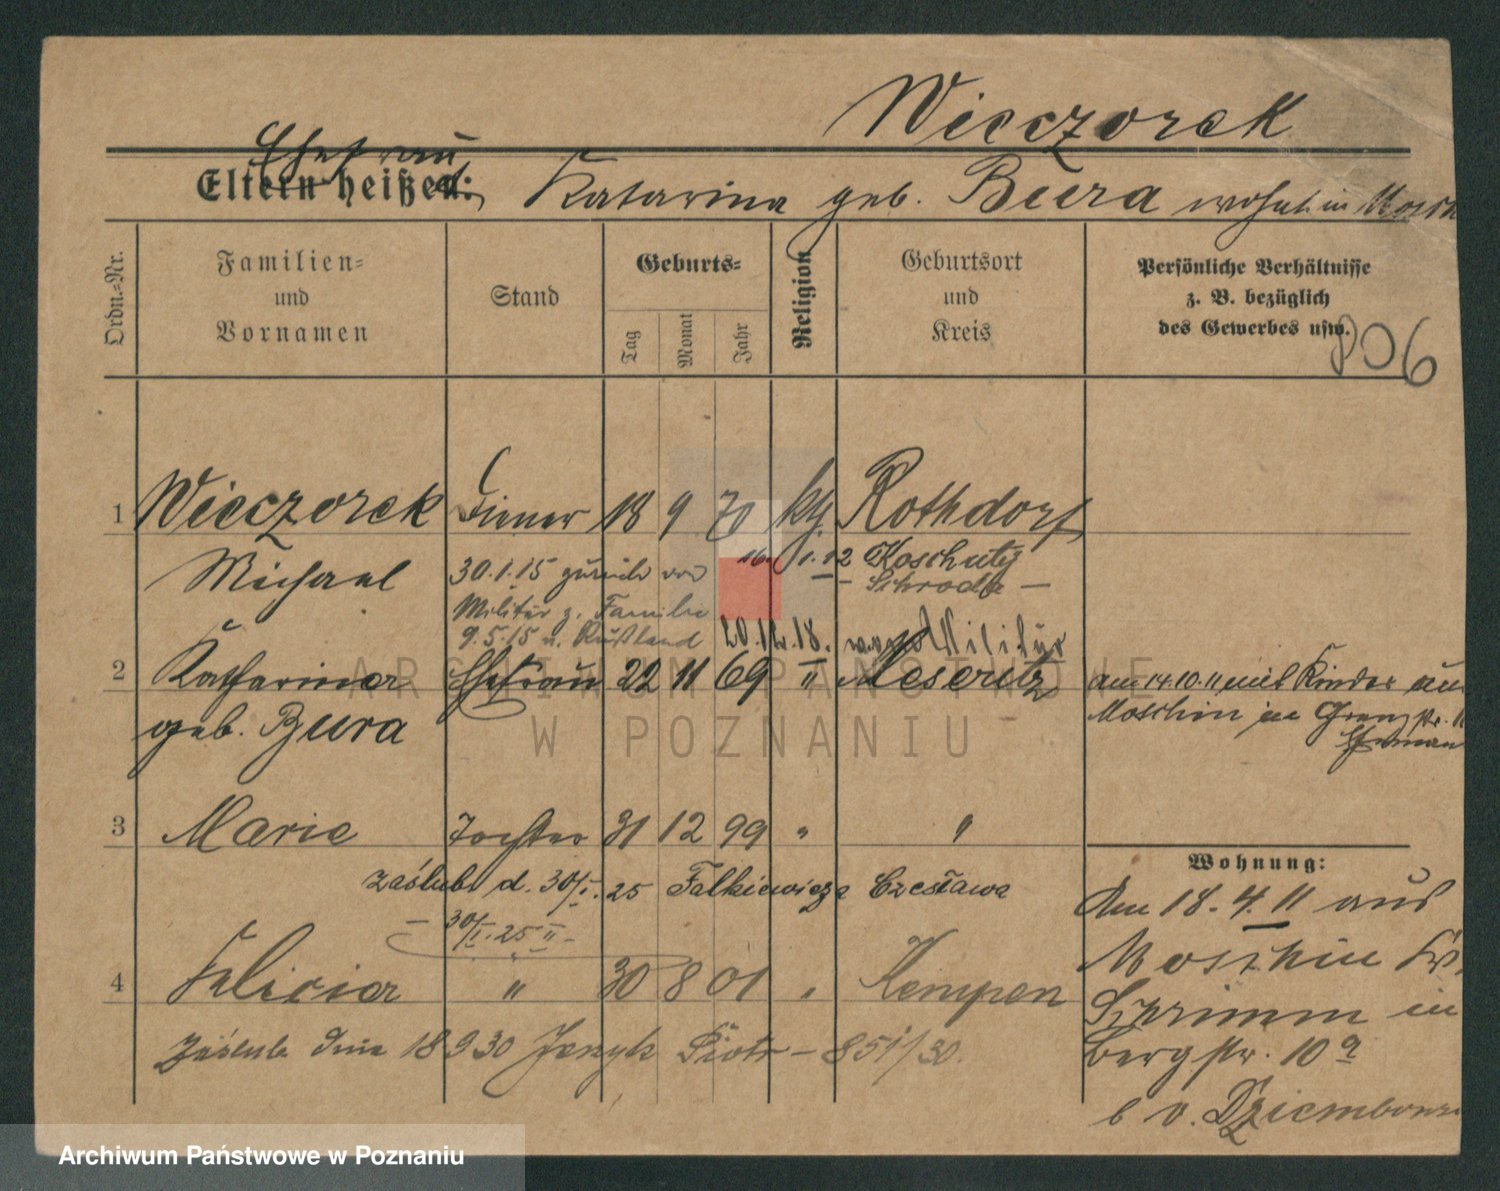 Wieczorek
Ehefrau
Eltern heißen: Katarina geb. Bura wohnt in Mosch
Ordn.=Nr.
Familien=
und
Vornamen
Stand
Geburts=
Tag
Monat
Jahr
Religion
Geburtsort
und
Kreis
Persönliche Verhältnisse
z. B. bezüglich
des Gewerbes usw.
906
1 Wieczorek Diener 18 9 70 kg Rothdorf
Michael
30.1.15 zurück von
Militär z. Familie
9.5.15 n. Rußland
16. 1. 12 Koschuty
– Schroda –
20.12.18. vom Militär
2 Katharina Ehefrau 22 11 69 " Meseritz
geb. Bura
am 14.10.11 mit Kinder aus
Moschin in Grenzstr. 11
Ehemann
3 Marie Tochter 31 12 99 " "
zaślub. d. 30/I. 25 Falkiewicza Czesława
– 30/I. 25 II –
4 Felicia " 30 8 01 " Kempen
Zaślub. dnia 18 9 30 Piotr – 851/30.
Wohnung:
Am 18. 4. 11 aus
Moschin Kr.
Schrimm in
Bergstr. 10a
b v. Dziembows
ARCHIWUM PAŃSTWOWE
W POZNANIU
Archiwum Państwowe w Poznaniu